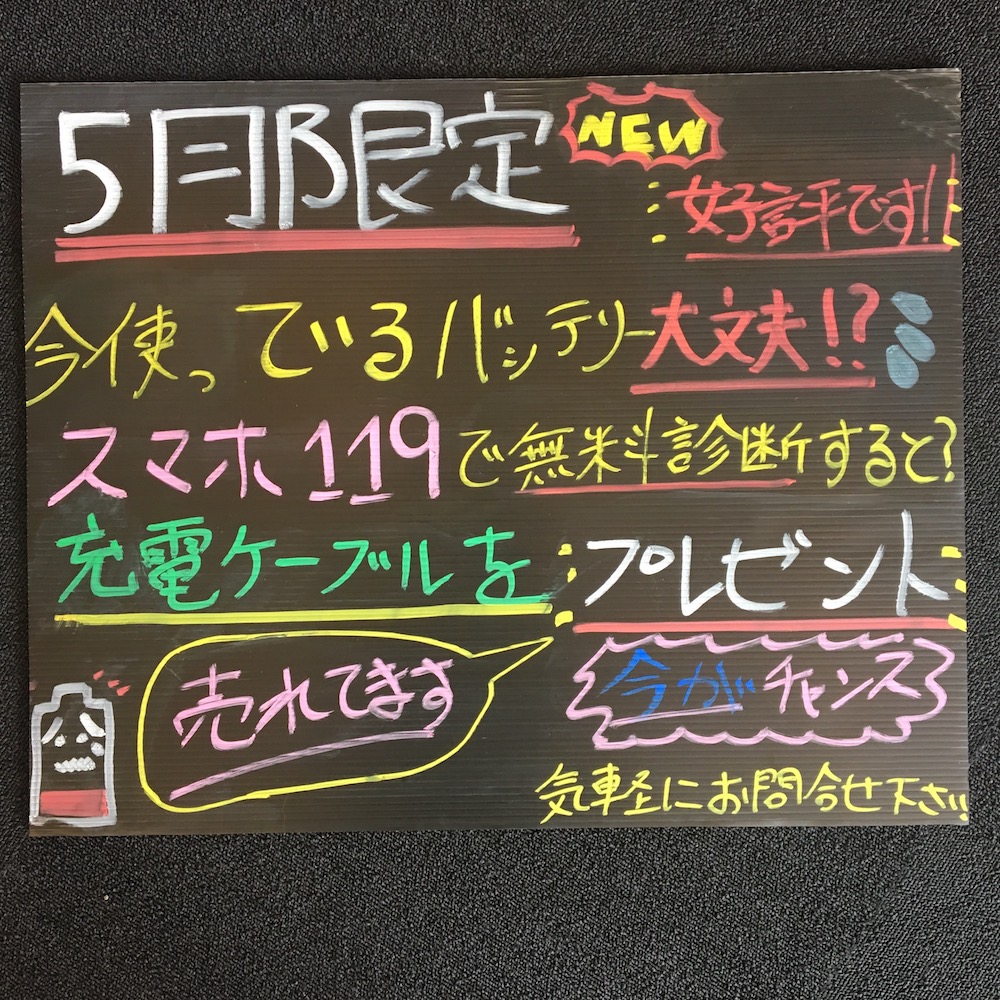 5月限定
NEW
好評です!!
今使っているバッテリー大丈夫!?
スマホ119で無料診断すると?
充電ケーブルを
プレゼント
売れてます
今がチャンス
気軽にお問合せ下さい